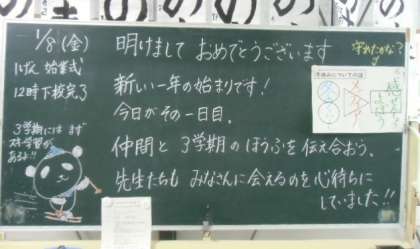 1/8(金)
1げん 始業式
12時下校完了
3学期には まず
スキー学習が
あるよ!!
明けまして おめでとうございます
新しい一年の始まりです!
今日がその一日目。
仲間と3学期のほうふを伝え合おう。
先生たちも みなさんに会えるのを心待ちに
していました!!
守れたかな?
冬休みについての話